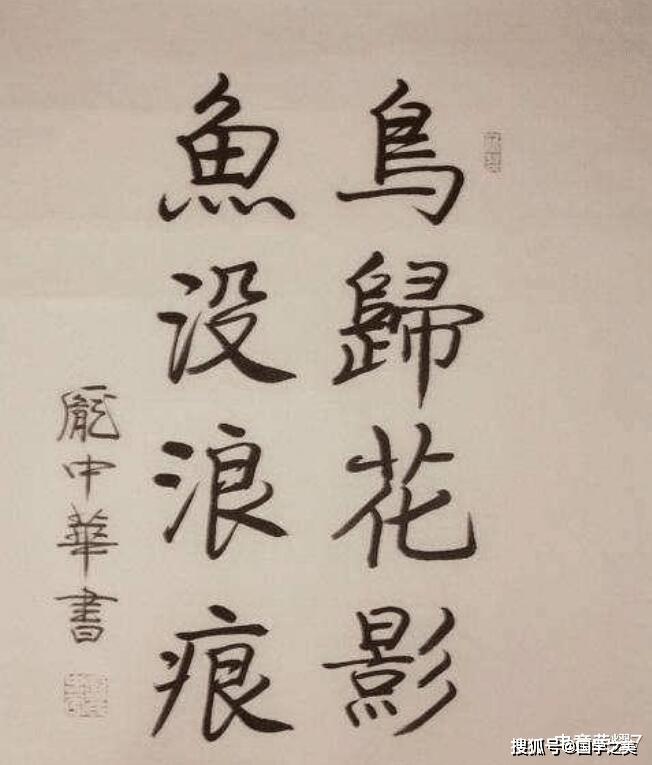 鳥歸花影
魚没浪痕
龐中華書
搜狐号@国学之美